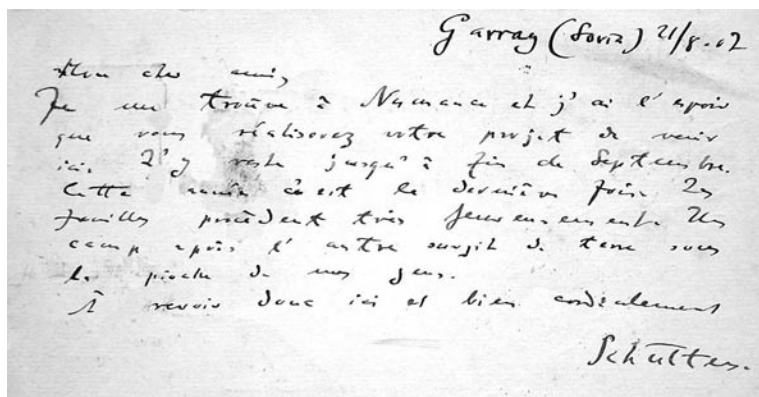 Garray (Soria) 21/8.07
Mon cher ami,
Je me trouve à Numance et j'ai l'espoir
que vous réaliserez votre projet de venir
ici. J'y reste jusqu'à fin de Septembre.
Cette année c'est la dernière fois. Les
fouilles procèdent très heureusement. Un
camp après l'autre surgit de terre sous
la pioche de mes gens.
À revoir donc ici et bien cordialement
Schulten.